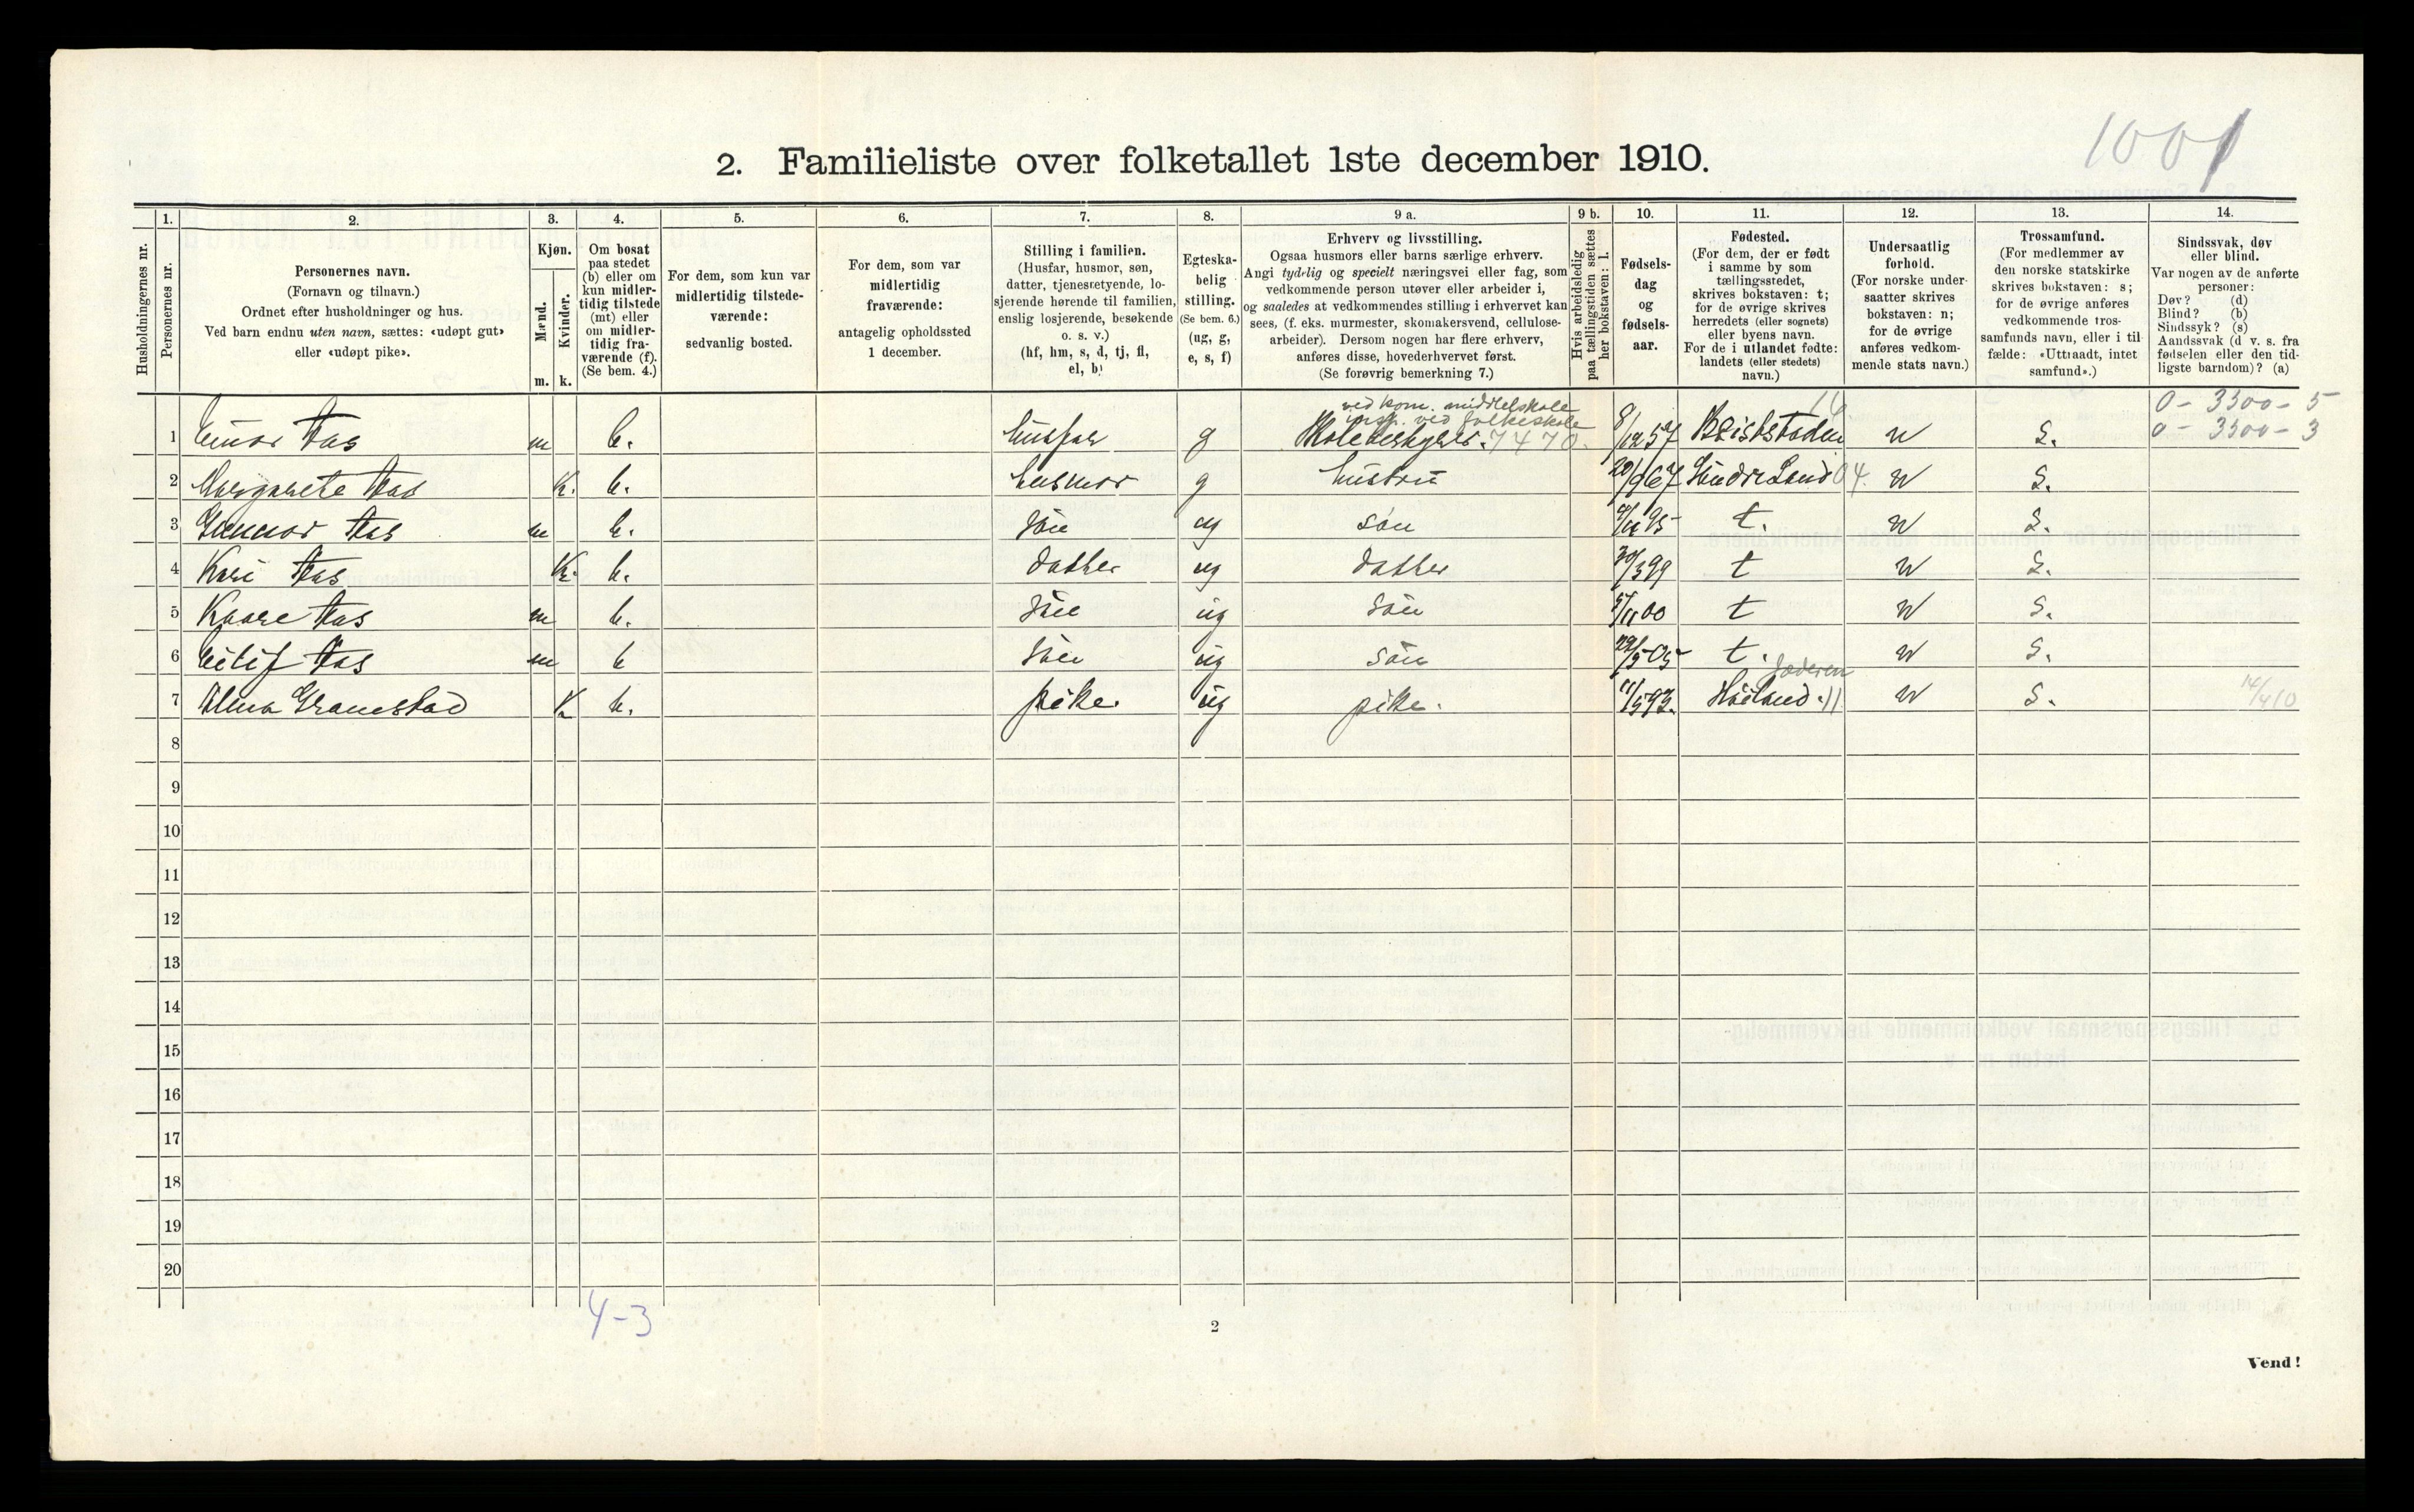 1001
2. Familieliste over folketallet 1ste december 1910.
Husholdningernes nr.
1.
Personernes nr.
2.
Personernes navn.
(Fornavn og tilnavn.)
Ordnet efter husholdninger og hus.
Ved barn endnu uten navn, sættes: «udøpt gut»
eller «udøpt pike».
3.
Kjøn.
Mænd.
Kvinder.
m. k.
4.
Om bosat
paa stedet
(b) eller om
kun midler-
tidig tilstede
(mt) eller
om midler-
tidig fra-
værende (f).
(Se bem. 4.)
5.
For dem, som kun var
midlertidig tilstede-
værende:
sedvanlig bosted.
6.
For dem, som var
midlertidig
fraværende:
antagelig opholdssted
1 december.
7.
Stilling i familien.
(Husfar, husmor, søn,
datter, tjenestetyende, lo-
sjerende hørende til familien,
enslig losjerende, besøkende
o. s. v.)
(hf, hm, s, d, tj, fl,
el, b)
8.
Egteska-
belig
stilling.
(Se bem. 6.)
(ug, g,
e, s, f)
9 a.
Erhverv og livsstilling.
Ogsaa husmors eller barns særlige erhverv.
Angi tydelig og specielt næringsvei eller fag, som
vedkommende person utøver eller arbeider i,
og saaledes at vedkommendes stilling i erhvervet kan
sees, (f. eks. murmester, skomakersvend, cellulose-
arbeider). Dersom nogen har flere erhverv,
anføres disse, hovederhvervet først.
(Se forøvrig bemerkning 7.)
9 b.
Hvis arbeidsledig
paa tællingstiden sættes
her bokstaven: l.
10.
Fødsels-
dag
og
fødsels-
aar.
11.
Fødested.
(For dem, der er født
i samme by som
tællingsstedet,
skrives bokstaven: t;
for de øvrige skrives
herredets (eller sognets)
eller byens navn.
For de i utlandet fødte:
landets (eller stedets)
navn.)
12.
Undersaatlig
forhold.
(For norske under-
saatter skrives
bokstaven: n;
for de øvrige
anføres vedkom-
mende stats navn.)
13.
Trossamfund.
(For medlemmer av
den norske statskirke
skrives bokstaven: s;
for de øvrige anføres
vedkommende tros-
samfunds navn, eller i til-
fælde: «Uttraadt, intet
samfund».)
14.
Sindssvak, døv
eller blind.
Var nogen av de anførte
personer:
Døv? (d)
Blind? (b)
Sindssyk? (s)
Aandssvak (d v. s. fra
fødselen eller den tid-
ligste barndom)? (a)
ved kom. middelskole 0 - 3500 - 5
insp. ved folkeskole
1 Einar Aas m b. husfar g Skolebestyrer. 7470. 8/12 57 Beitstaden 16. n s. 0 - 3500 - 3
2 Margarete Aas k. b. husmor g hustru 20/9 67 Søndre Land 04. n s.
3 Gunnar Aas m b. søn ug søn 9/11 95 t. n s.
4 Kari Aas k. b. datter ug datter 30/3 99 t n s.
5 Kaare Aas m b. søn ug søn 5/11 00 t n s.
6 Eilif Aas m b søn ug søn 29/5 05 t. n s.
Jæderen
7 Alma Gramstad k b. pike. ug pike. 11/5 93. Høiland. 11 n s. 14/4 10
8
9
10
11
12
13
14
15
16
17
18
19
20
4-3
2
Vend!